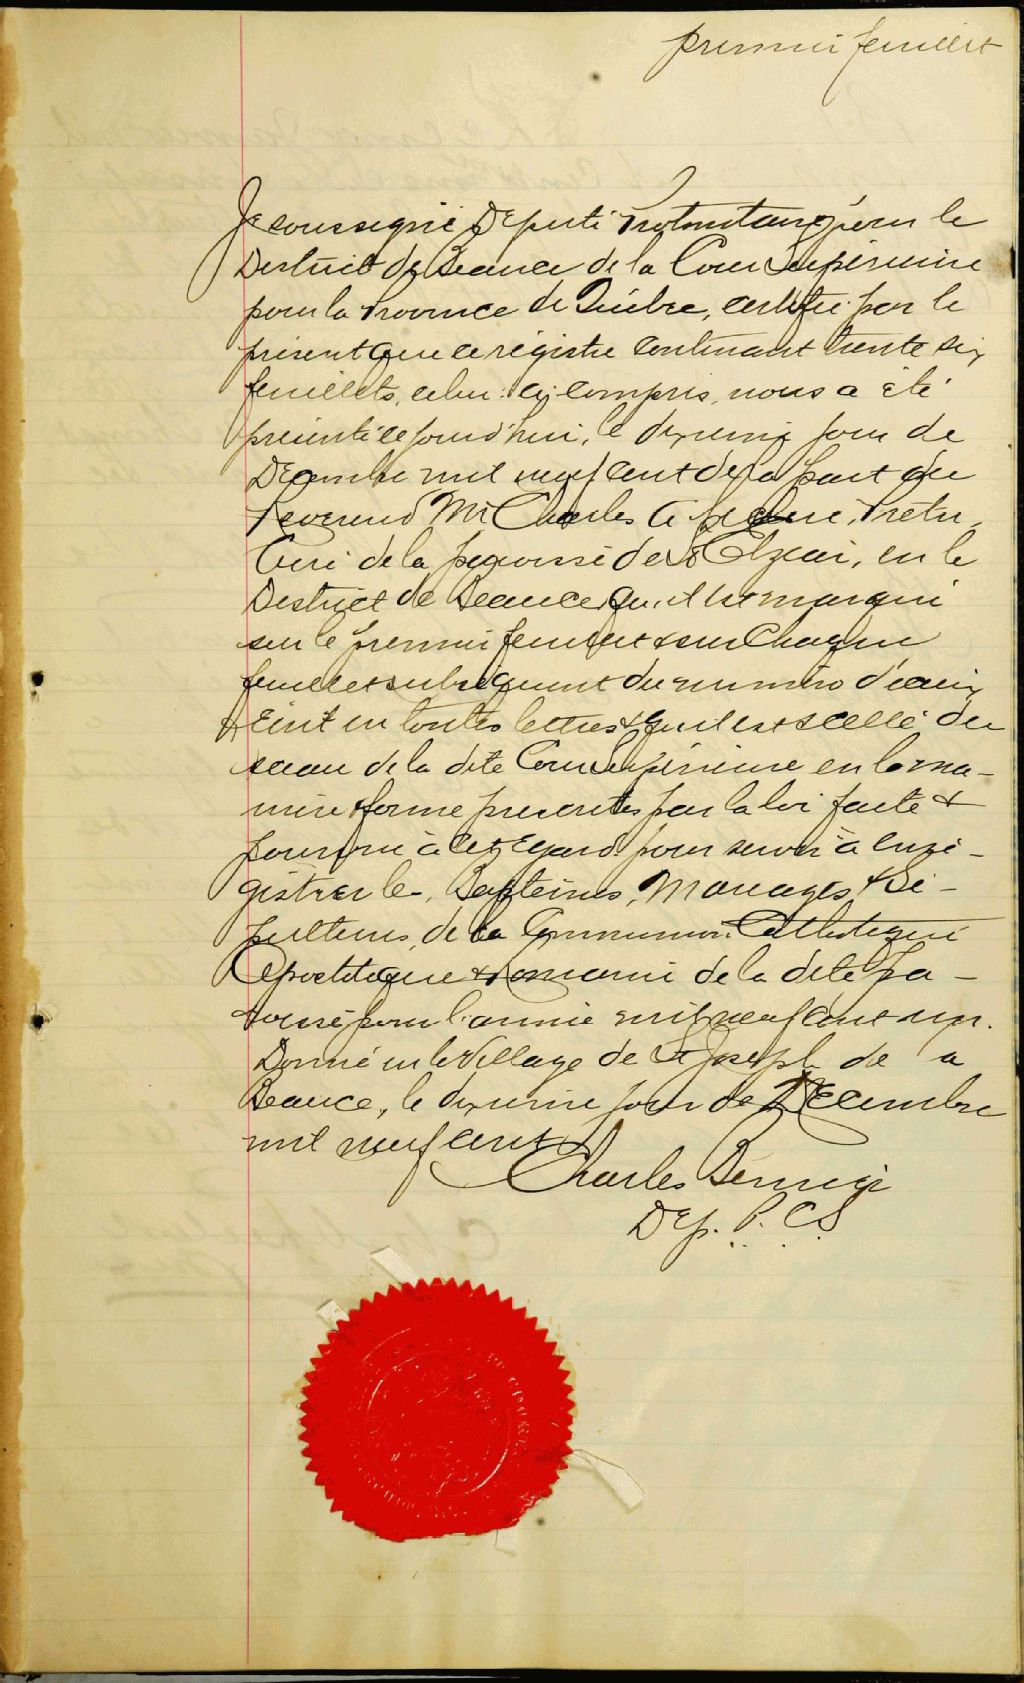 premier feuillet
Je soussigné Député Protonotaire pour le
District de Beauce de la Cour Supérieure
pour la Province de Québec, certifie par le
présent que ce régistre contenant trente six
feuillets, celui-ci compris, nous a été
présenté ce jourd'hui, le dixième jour de
Décembre mil neuf cent de la part du
Révérend Mr Charles A Prêtre
Curé de la paroisse de St Elzéar, en le
District de Beauce, qu'il est marqué
sur le premier feuillet & sur chaque
feuillet subséquent du numéro d'icelui
écrit en toutes lettres & qu'il est scellé du
sceau de la dite Cour Supérieure en la ma-
nière & forme prescrites par la loi faite &
pourvue à cet égard pour servir à enre-
gistrer les Baptêmes, Mariages & Sé-
pultures, de la Communion Catholique
Apostolique & Romaine de la dite Pa-
roisse pour l'année mil neuf cent un.
Donné en le Village de St Joseph de la
Beauce, le dixième jour de Décembre
mil neuf cent
Charles
Dép. P. C. S.